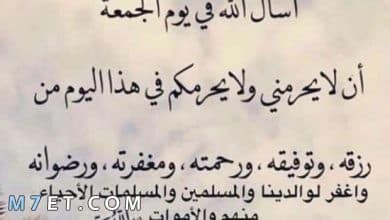 اسأل الله في يوم الجمعة
أن لا يحرمني ولا يحرمكم في هذا اليوم من
رزقه ، وتوفيقه ، ورحمته ، ومغفرته ، ورضوانه
واغفر لوالدينا والمسلمين والمسلمات الأحياء
منهم والأموات
M7ET.COM